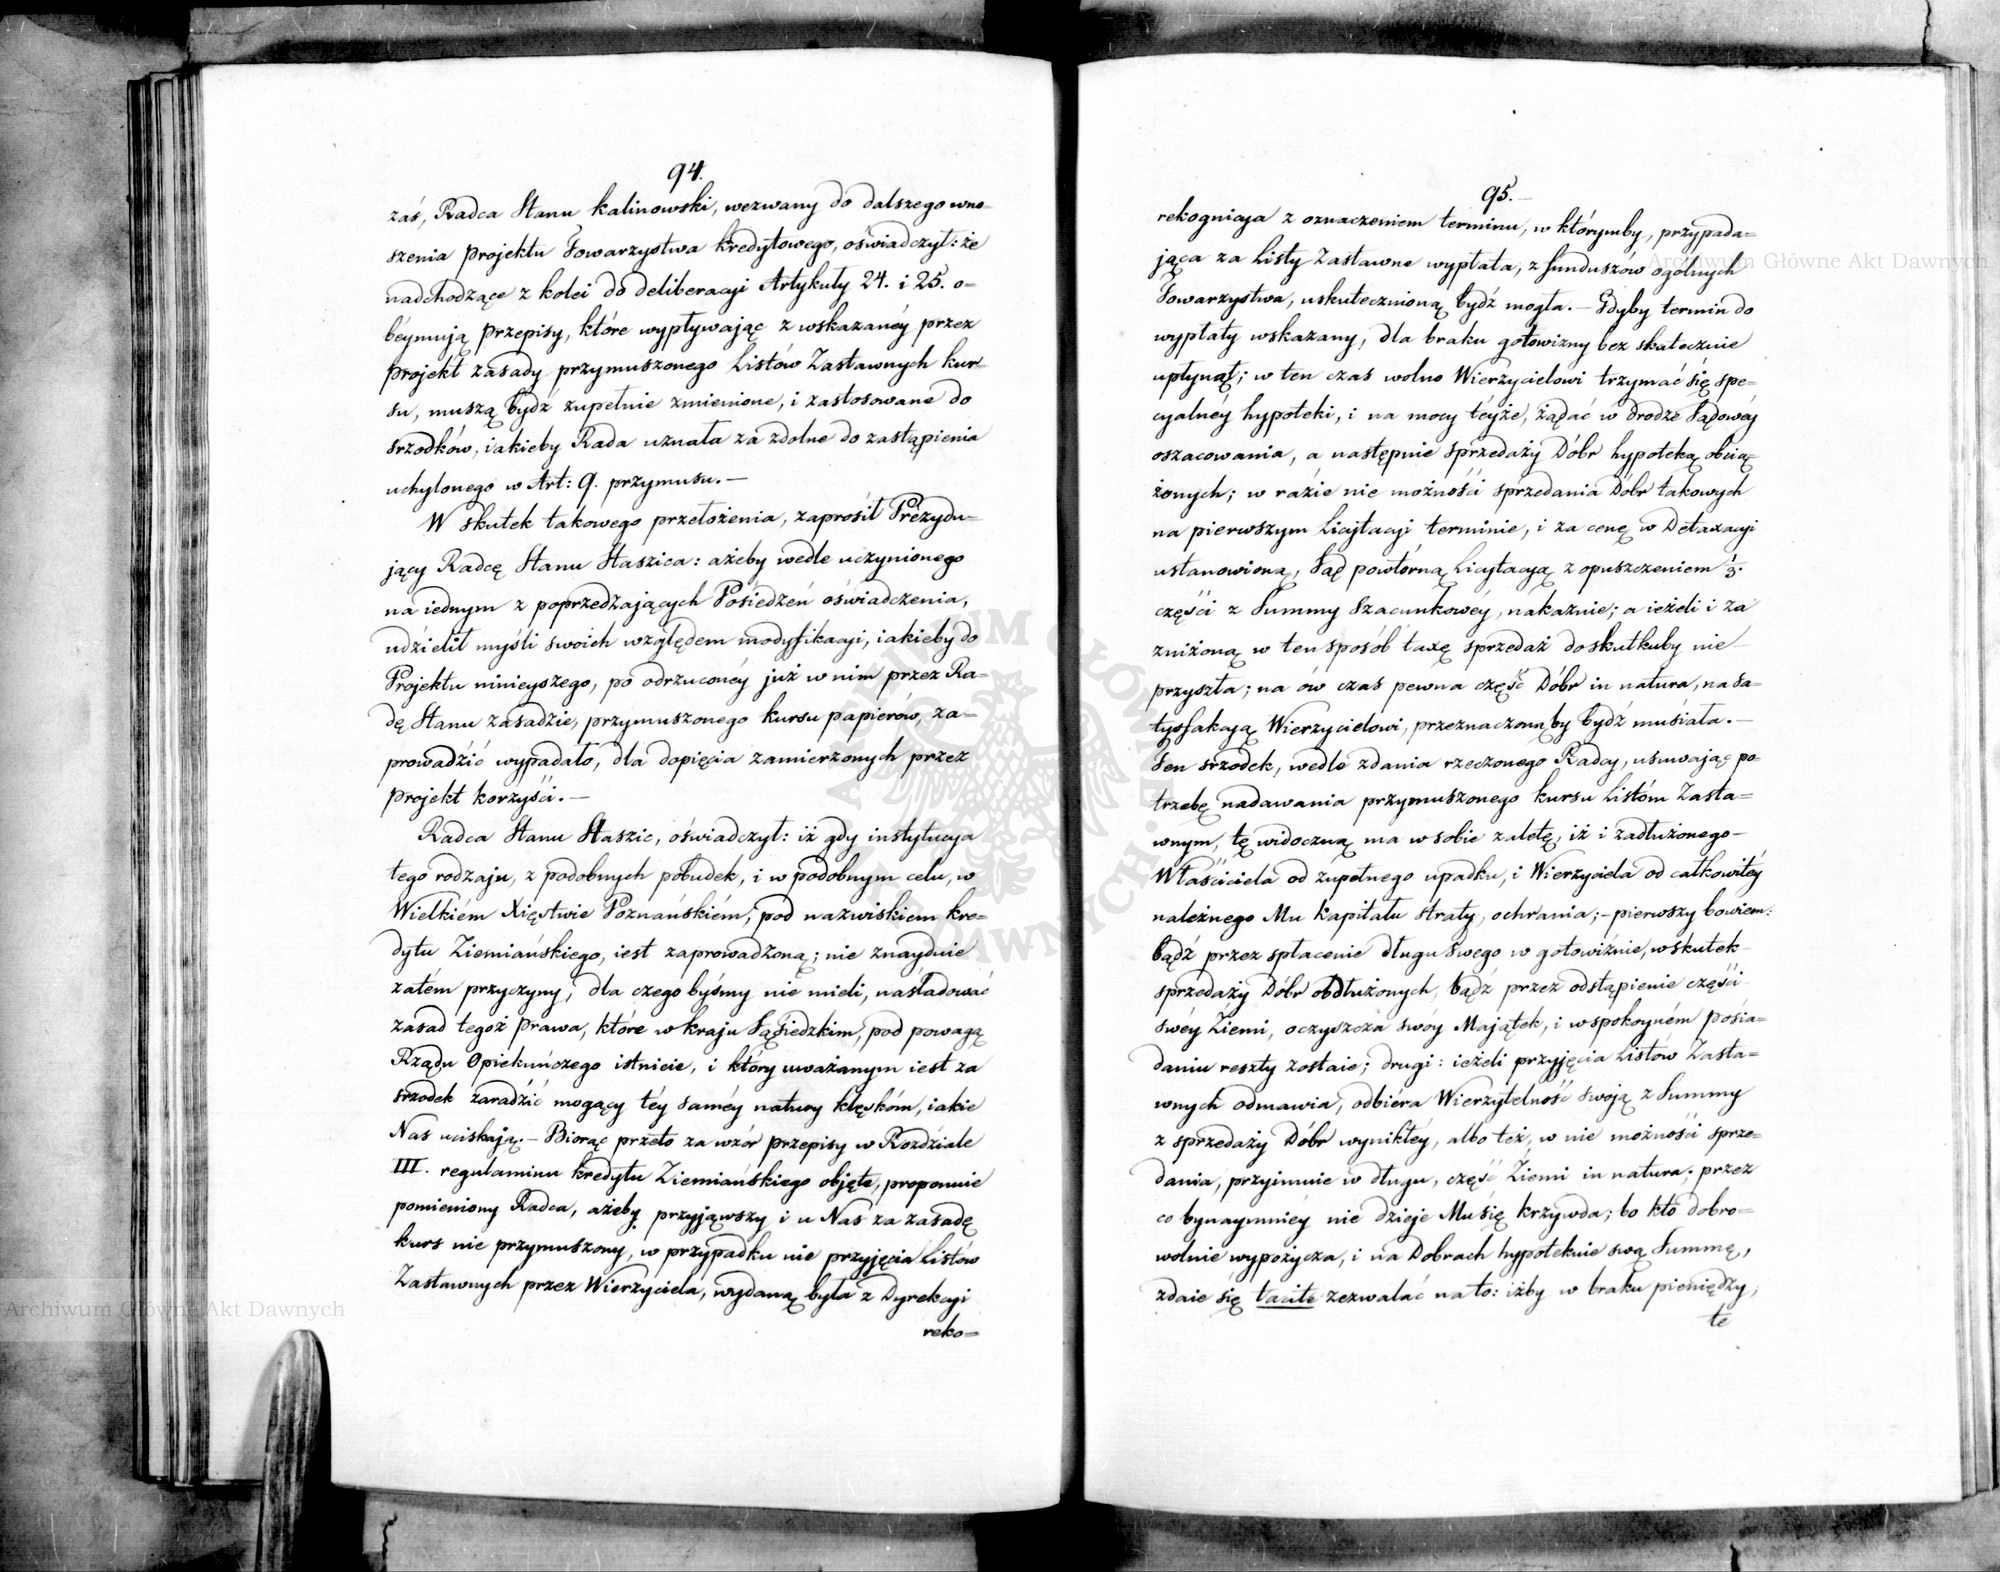 94.
zaś, Radca Stanu Kalinowski, wezwany do dalszego wno-
szenia projektu Towarzystwa kredytowego, oświadczył: że
nadchodzące z kolei do deliberacyi Artykuły 24. i 25. o-
béymują przepisy, które wypływając z wskazanéy przez
projekt zasady przymuszonego Listów Zastawnych kur-
su, muszą bydź zupełnie zmienione, i zastosowane do
srzodków, iakieby Rada uznała za zdolne do zastąpienia
uchylonego w Art: 9. przymusu. —
W skutek takowego przełożenia, zaprosił Prezydu-
jący Radcę Stanu Staszica: ażeby wedle uczynionego
na iednym z poprzedzających Posiedzeń oświadczenia,
udzielił myśli swoich względem modyfikacyi, iakieby do
Projektu ninieyszego, po odrzuconéy już w nim przez Ra-
dę Stanu zasadzie, przymuszonego kursu papierów, za-
prowadzić wypadało, dla dopięcia zamierzonych przez
projekt korzyści. —
Radca Stanu Staszic, oświadczył: iż gdy instytucya
tego rodzaju, z podobnych pobudek, i w podobnym celu, w
Wielkiém Xięstwie Poznańskiém, pod nazwiskiem kre-
dytu Ziemiańskiego, iest zaprowadzoną; nie znayduie
zatém przyczyny, dla czego byśmy nie mieli, naśladować
zasad tegoż prawa, które w kraju Sąsiedzkim, pod powagą
Rządu Opiekuńczego istnieie, i który uważanym iest za
srzodek zaradzić mogący téy saméy natury klęskóm, iakie
Nas uciskają. — Biorąc przeto za wzór przepisy w Rozdziale
III. regulaminu kredytu Ziemiańskiego objęte, proponuie
pomieniony Radca, ażeby przyjąwszy i u Nas za zasadę
kurs nie przymuszony, w przypadku nie przyjęcia Listów
Zastawnych przez Wierzyciela, wydaną była z Dyrekcyi
reko-
95. —
rekognicya z oznaczeniem terminu, w którymby, przypada-
jąca za Listy Zastawne wypłata, z funduszów ogólnych
Towarzystwa, uskutecznioną bydź mogła. — Gdyby termin do
wypłaty wskazany, dla braku gotowizny bez skutecznie
upłynął; w ten czas wolno Wierzycielowi trzymać się spe-
cyalnéy hypoteki, i na mocy téyże, żądać w drodze Sądowéy
oszacowania, a następnie sprzedaży Dóbr hypoteką obcią-
żonych; w razie nie możności sprzedania Dóbr takowych
na pierwszym Licytacyi terminie, i za cenę w Detaxacyi
ustanowioną, Sąd powtórną Licytacyą z opuszczeniem 1/3.
części z Summy Szacunkowéy, nakazuie; a ieżeli i za
zniżoną w ten sposób taxę sprzedaż do skutkuby nie —
przyszła; na ów czas pewna część Dóbr in natura, na sa-
tysfakcyą Wierzycielowi, przeznaczonąby bydź musiała. —
Ten srzodek, wedle zdania rzeczonego Radcy, usuwając po-
trzebę nadawania przymuszonego kursu Listóm Zasta-
wnym, tę widoczną ma w sobie zaletę, iż i zadłużonego —
Właściciela od zupełnego upadku, i Wierzyciela od całkowitéy
należnego Mu kapitału straty, ochrania; — pierwszy bowiem:
bądź przez spłacenie długu Swego w gotowiźnie, w skutek
sprzedaży Dóbr obdłużonych, bądź przez odstąpienie części
swéy Ziemi, oczyszcza swóy Majątek, i w spokoyném posia-
daniu reszty zostaie; drugi: ieżeli przyjęcia Listów Zasta-
wnych odmawia, odbiéra Wierzytelność swoją z Summy
z sprzedaży Dóbr wynikłéy, albo też, w nie możności sprze-
dania, przyimuie w długu, część Ziemi in natura; przez
co bynaymniéy nie dzieje Mu się krzywda; bo kto dobro-
wolnie wypożycza, i na Dobrach hypotekuie swą Summę,
zdaie się tacite zezwalać na to: iżby w braku pieniędzy,
te
Archiwum Główne Akt Dawnych
Archiwum Główne Akt Dawnych
ARCHIWUM GŁÓWNE AKT DAWNYCH